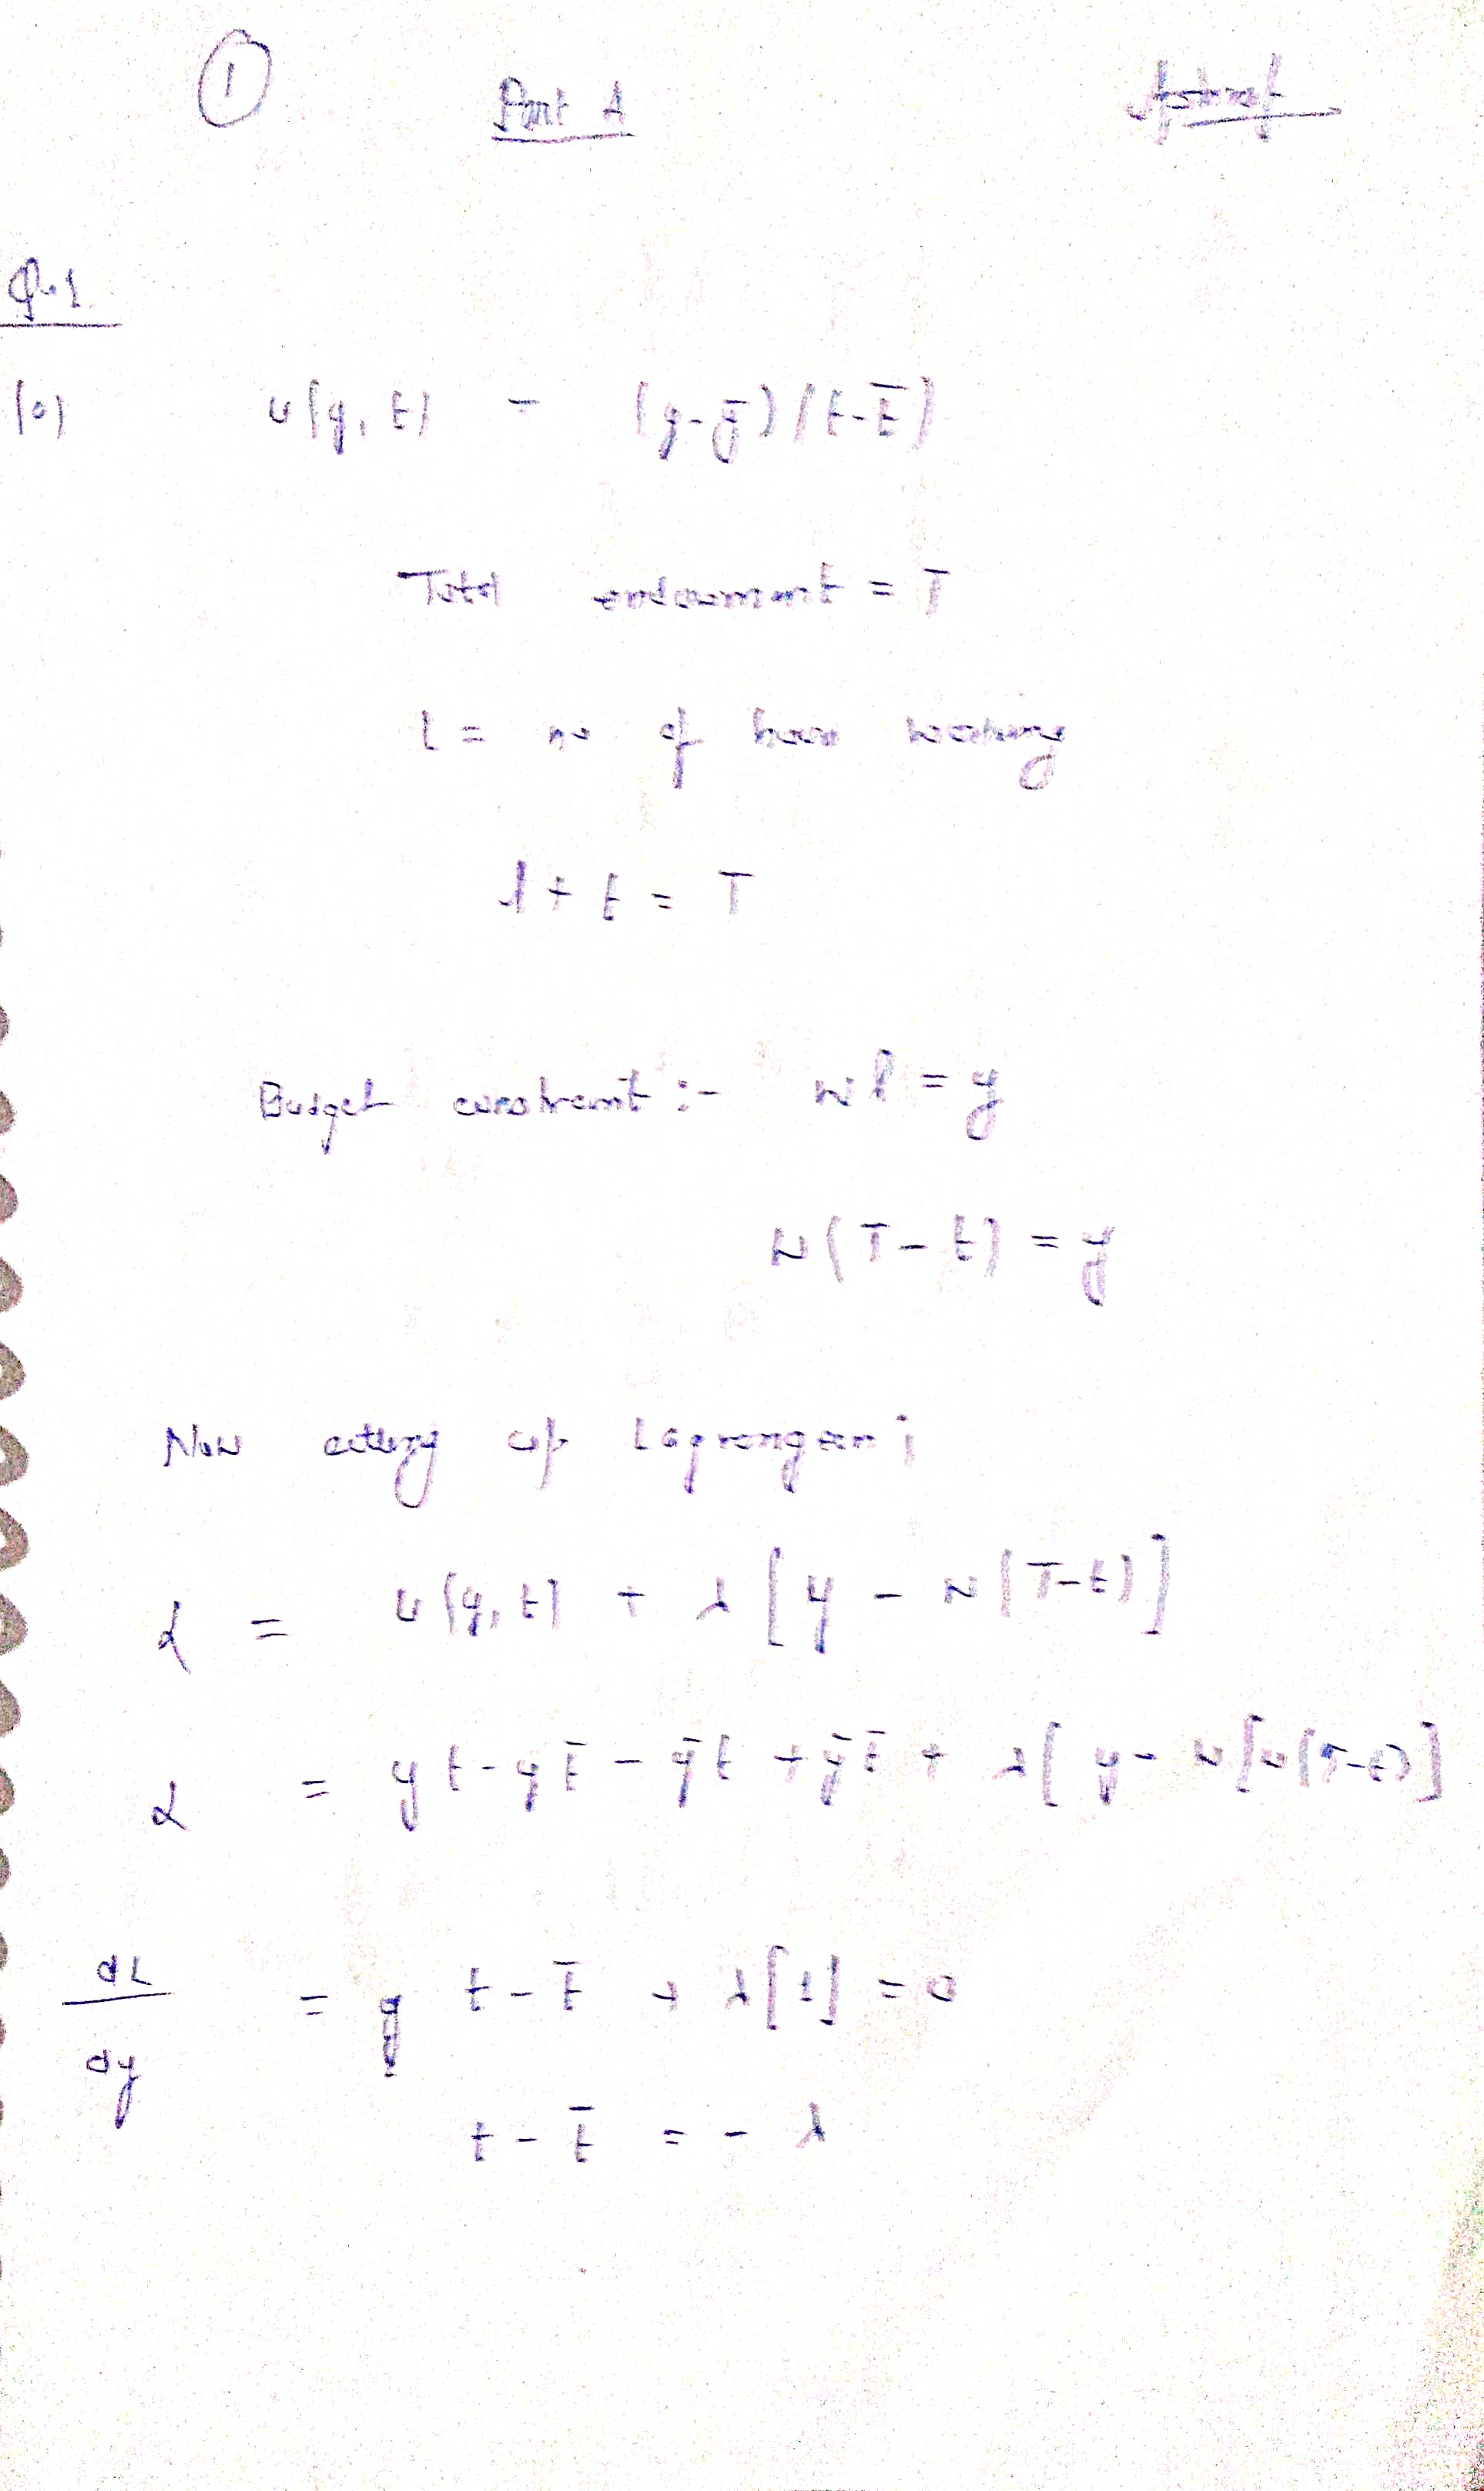 1 Part A
Qu.1
(a) u(y, t) = (y-ȳ)(t-t̄)
Total endowment = T
l = no of hours working
l + t = T
Budget constraint :- wl = y
w(T-t) = y
Now setting up Lagrangean ;
L = u(y, t) + λ[y - w(T-t)]
L = yt - yt̄ - ȳt + ȳt̄ + λ[y - w(T-t)]
dL/dy = t - t̄ + λ[1] = 0
t - t̄ = - λ